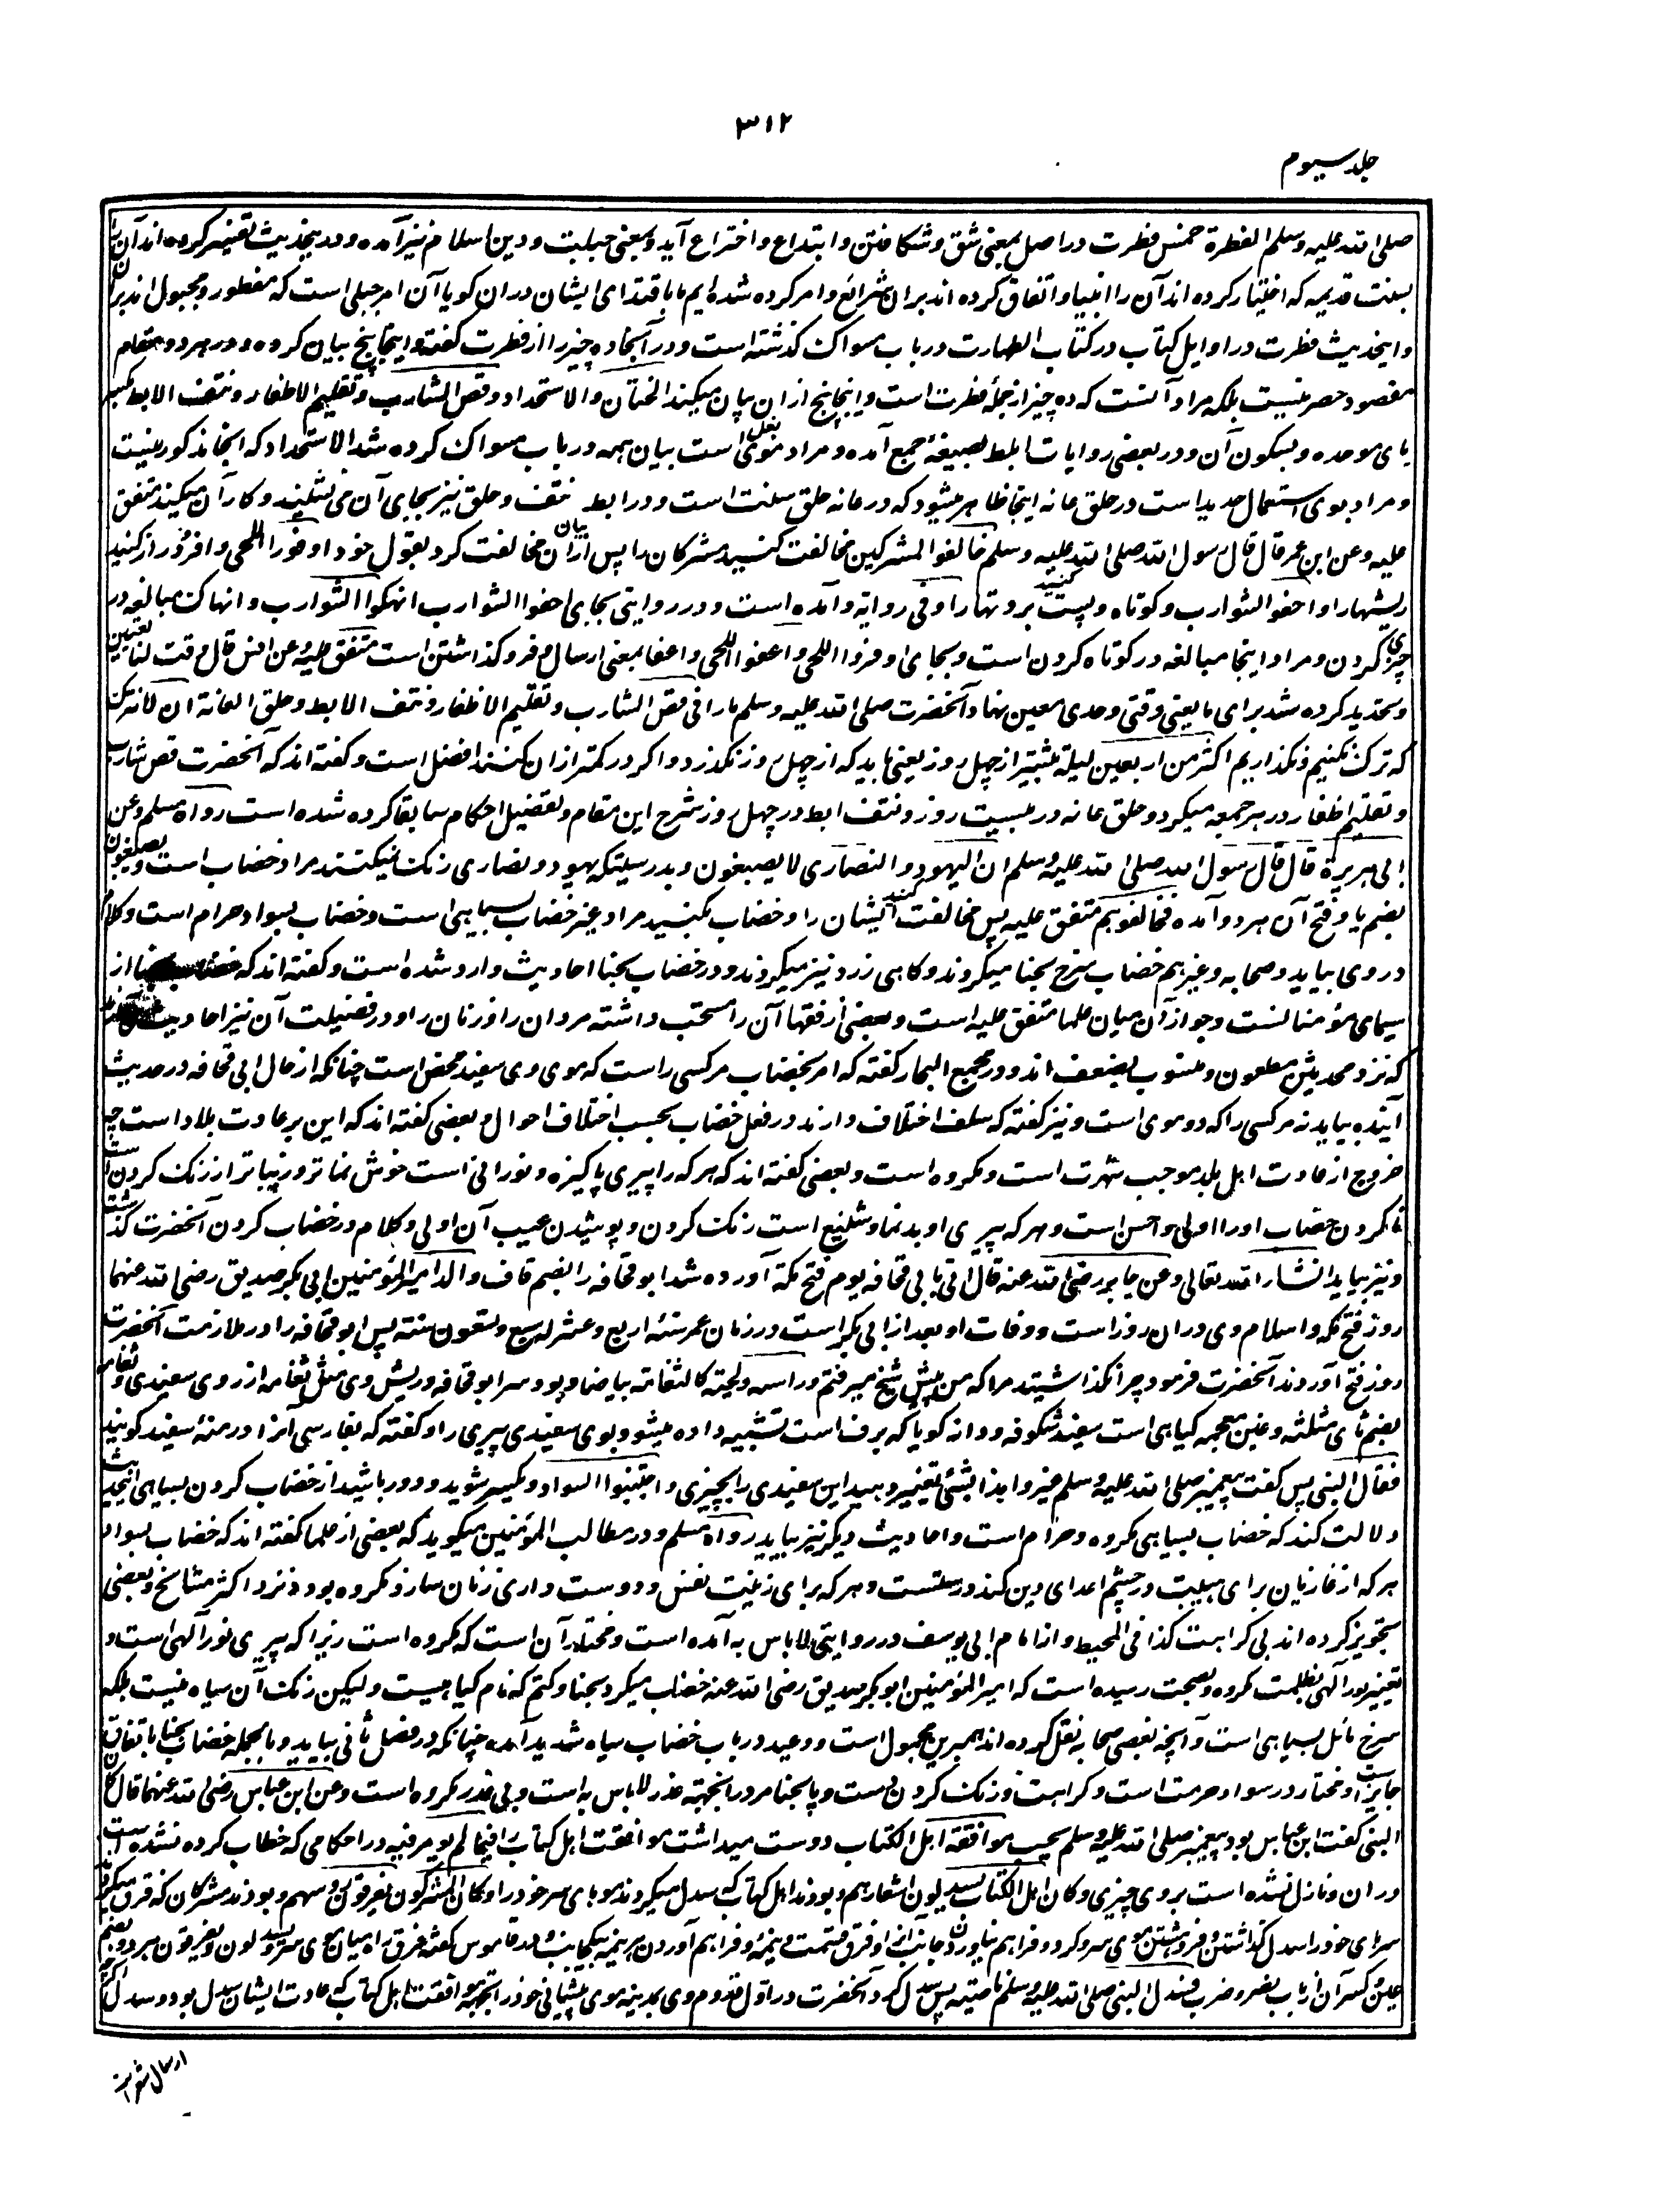 ۳۱۲
جلد سیوم
صلی الله علیه وسلم الفطرة خمس فطرت در اصل بمعنی شق و شکافتن و ابتداع و اختراع آید و بمعنی جبلیت و دین اسلام نیز آمده و در ینحدیث تفسیر کرده اند آن را
بسنت قدیمه که اختیار کرده اند آن را انبیا و اتفاق کرده اند بران شرائع و امر کرده شده ایم ما باقتدای ایشان دران کویا آن امر جبلی است که مفطور و مجبول اند بران
و اینحدیث فطرت در اوایل کتاب در کتاب الطهارت در باب مسواک کذشته است و در آنجا ده چیز را از فطرت کفته و اینجا پنج بیان کرده و در هر دو مقام
مقصود حصر نیست بلکه مراد آنست که ده چیز از جملهٔ فطرت است و اینجا پنج ازان بیان میکند الختان و الاستحداد و قص الشارب و تقلیم الاظفار و نتف الابط بکسر
بای موحده و بسکون آن و در بعضی روایات اباط بصیغهٔ جمع آمده و مراد موی بغل است بیان همه در باب مسواک کرده شد الاستحداد که آنجا مذکور نیست
و مراد بوی استعمال حدید است در حلق عانه اینجا ظاهر میشود که در عانه حلق سنت است و در ابط نتف و حلق نیز بجای آن می نشیند و کار آن میکند متفق
علیه وعن ابن عمر قال قال رسول الله صلی الله علیه وسلم خالفوا المشرکین مخالفت کنید مشرکان را پس ازان بیان مخالفت کرد بقول خود اوفروا اللحی وافر و دراز کنید
ریشها را و احفوا الشوارب و کوتاه و پست کنید بروتها را وفی روایة و آمده است و در روایتی بجای احفوا الشوارب انهکوا الشوارب و انهاک مبالغه در
چیزی کردن و مراد اینجا مبالغه در کوتاه کردن است و بجای اوفروا اللحی و اعفوا اللحی و اعفا بمعنی ارسال و فرو کذاشتن است متفق علیه وعن انس قال وقت لنا تعیین
و تحدید کرده شد برای ما یعنی وقتی و حدی معین نهاد آنحضرت صلی الله علیه وسلم ما را فی قص الشارب و تقلیم الاظفار و نتف الابط و حلق العانة ان لا نترک
که ترک نکنیم و نکذاریم اکثر من اربعین لیلة بیشتر از چهل روز یعنی باید که از چهل روز نکذرد و اکر در کمتر ازان کنند افضل است و کفته اند که آنحضرت قص شارب
و تقلیم اظفار در هر جمعه میکرد و حلق عانه در بیست روز و نتف ابط در چهل روز شرح این مقام و تفصیل احکام سابقا کرده شده است رواه مسلم وعن
ابی هریرة قال قال رسول الله صلی الله علیه وسلم ان الیهود و النصاری لا یصبغون و بدرستیکه یهود و نصاری رنک نمیکنند مراد خضاب است و یصبغون
بضم با و فتح آن هر دو آمده فخالفوهم متفق علیه پس مخالفت کنید ایشان را و خضاب بکنید مراد غیر خضاب بسیاهی است و خضاب بسواد حرام است و کلام
در وی بیاید و صحابه و غیرهم خضاب سرخ بحنا میکردند و کاهی زرد نیز میکردند و در خضاب بحنا احادیث وارد شده است و کفته اند که خضاب بحنا از
سیمای مؤمنانست و جواز آن میان علما متفق علیه است و بعضی از فقها آن را مستحب داشته مردان را و زنان را و در فضیلت آن نیز احادیث
که نزد محدثین مطعون و منسوب بضعف اند و در مجمع البحار کفته که امر بخضاب مر کسی راست که موی وی سفید محض است چنانکه از حال ابی قحافه در حدیث
آینده بیاید نه مر کسی را که دو موی است و نیز کفته که سلف اختلاف دارند در فعل خضاب بحسب اختلاف احوال و بعضی کفته اند که این بر عادت بلاد است چه
خروج از عادت اهل بلد موجب شهرت است و مکروه است و بعضی کفته اند که هر که را پیری پاکیزه و نورانی است خوش نما تر و زیبا تر از رنک کردن است
ناکردن خضاب او را اولی و احسن است و هر که پیری او بدنما و شنیع است رنک کردن و پوشیدن عیب آن اولی و کلام در خضاب کردن آنحضرت کذشت
و نیز بیاید انشاء الله تعالی وعن جابر رضی الله عنه قال اتی بابی قحافه یوم فتح مکة آورده شد ابو قحافه را بضم قاف والد امیر المؤمنین ابی بکر صدیق رضی الله عنهما
روز فتح مکه و اسلام وی دران روز است و وفات او بعد از ابی بکر است در زمان عمر سنة اربع وعشر له سبع وتسعون سنة پس ابو قحافه را در ملازمت آنحضرت
روز فتح آوردند آنحضرت فرمود چرا نکذاشتید مرا که من پیش شیخ میرفتم و راسه ولحیته کالثغامة بیاضا و بود سر ابو قحافه و ریش وی مثل ثغامه از روی سفیدی و ثغامه
بضم ثای مثلثه و غین معجمه کیاهی است سفید شکوفه و دانه کویا که برف است تشبیه داده میشود بوی سفیدی پیری را و کفته که بفارسی آنرا درمنهٔ سفید کویند
فقال النبی پس کفت پیمبر صلی الله علیه وسلم غیروا هذا بشئ تغییر دهید این سفیدی را بچیزی و اجتنبوا السواد و یکسو شوید و دور باشید از خضاب کردن بسیاهی اینحدیث
دلالت کند که خضاب بسیاهی مکروه و حرام است و احادیث دیکر نیز بیاید رواه مسلم و در مطالب المؤمنین میکوید که بعضی از علما کفته اند که خضاب بسواد
هر که از غازیان برای هیبت در چشم اعدای دین کند درستست و هر که برای زینت نفس و دوست داری زنان سازد مکروه بود نزد اکثر مشائخ و بعضی
تجویز کرده اند بی کراهت کذا فی المحیط و از امام ابی یوسف در روایتی لا باس به آمده است و مختار آن است که مکروه است زیرا که پیری نور آلهی است و
تغییر نور آلهی بظلمت مکروه و بصحت رسیده است که امیر المؤمنین ابو بکر صدیق رضی الله عنه خضاب میکرد بحنا و کتم که نام کیاهیست و لیکن رنک آن سیاه نیست بلکه
سرخ مائل بسیاهی است و آنچه بعضی صحابه نقل کرده اند همبرین محمول است و وعید در باب خضاب سیاه شدید آمده چنانکه در فصل ثانی بیاید و بالجمله خضاب بحنا باتفاق
جایز است و مختار در سواد حرمت است و کراهت و رنک کردن دست و پا بحنا مرد را بجهة عذر لا باس به است و بی عذر مکروه است وعن ابن عباس رضی الله عنهما قال کان
النبی کفت ابن عباس بود پیغمبر صلی الله علیه وسلم یحب موافقة اهل الکتاب دوست میداشت موافقت اهل کتاب را فیما لم یومر فیه در احکامی که خطاب کرده نشده است
دران و نازل نشده است بروی چیزی و کان اهل الکتاب یسدلون اشعارهم و بودند اهل کتاب که سدل میکردند موهای سر خود را و کان المشرکون یفرقون رؤسهم و بودند مشرکان که فرق میکردند
سرهای خود را سدل کذاشتن و فروهشتن موی سر و کرد و فراهم نیاوردن جانب آنرا و فرق قسمت و نیمه و فراهم آوردن هر نیمه بیکجانب و در قاموس کفته فرق راه میان موی سر و یسدلون و یفرقون هر دو بضم
عین و کسر آن از باب نصر و ضرب فسدل النبی صلی الله علیه وسلم ناصیته پس سدل کرد آنحضرت در اول قدوم وی بمدینه موی پیشانی خود را بجهة موافقت اهل کتاب که عادت ایشان سدل بود و سدل
ارسال شعر است